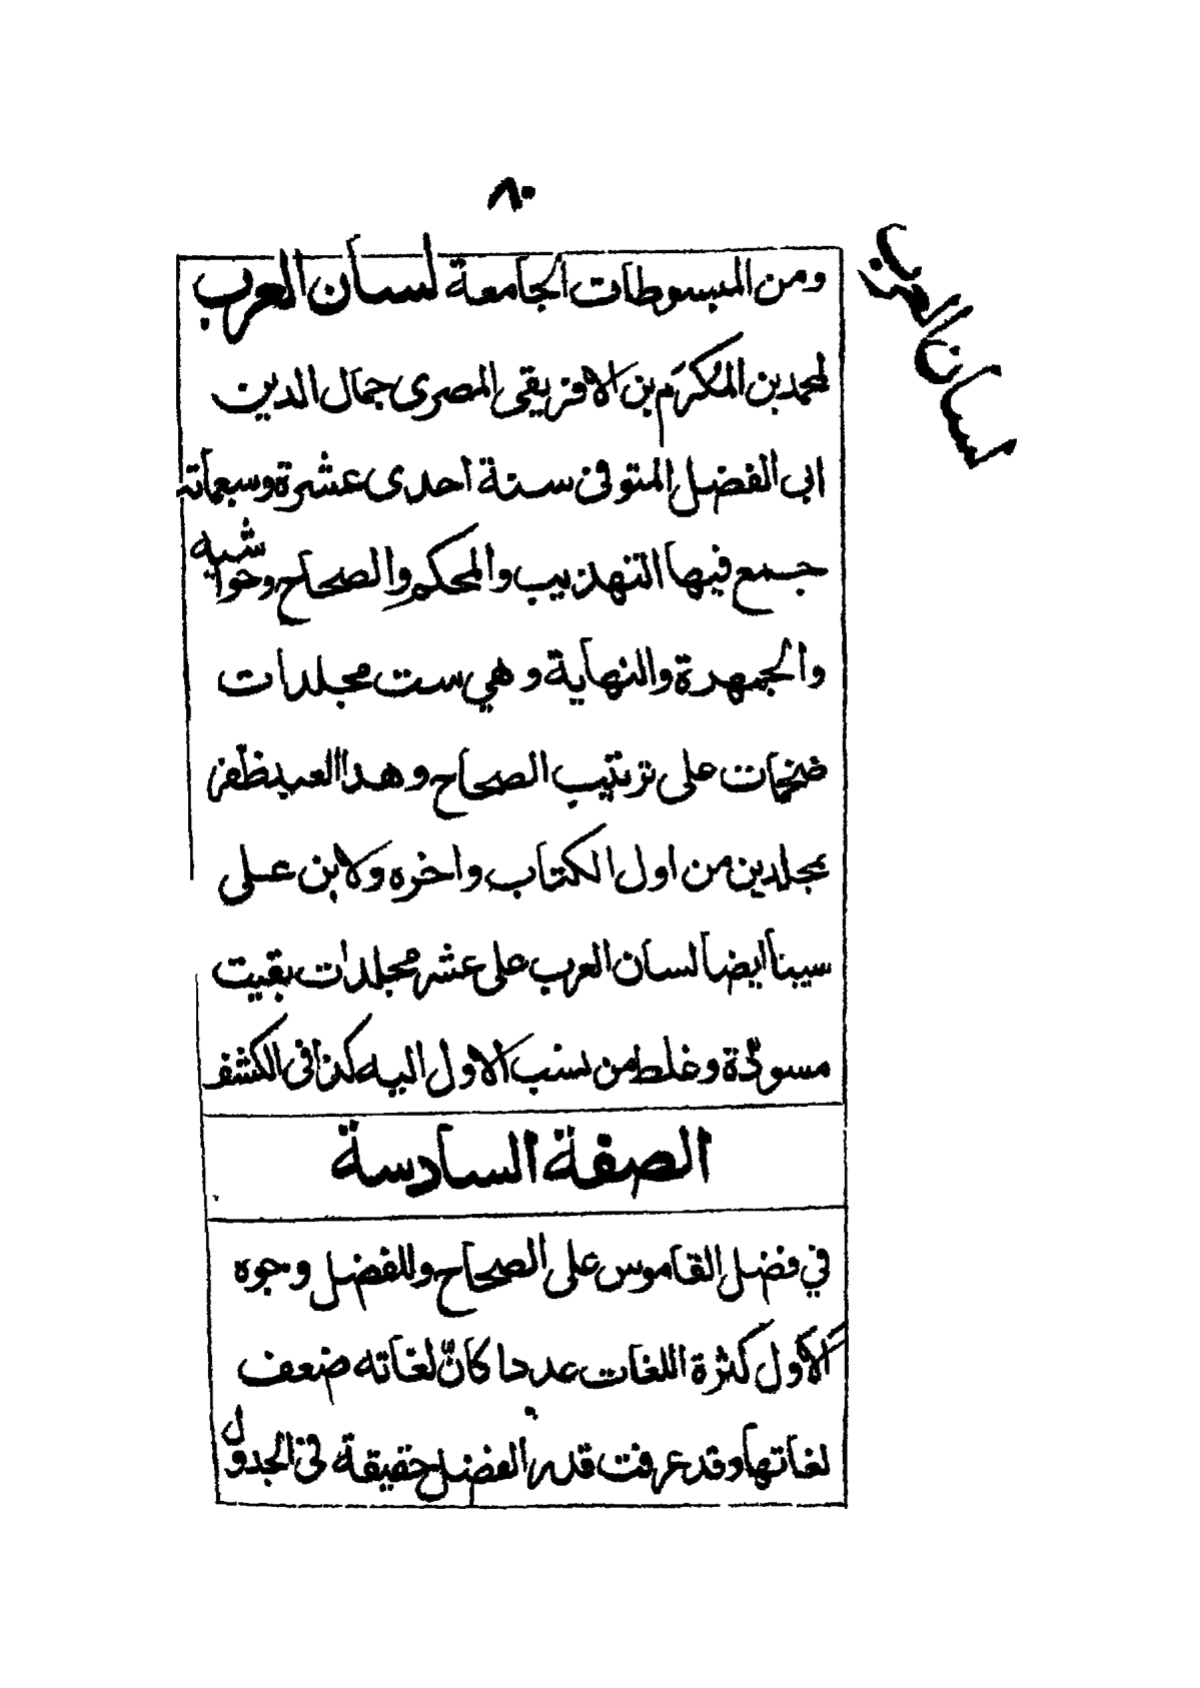 ٨٠
لسان العرب
ومن المبسوطات الجامعة لسان العرب
لمحمد بن المكرّم بن الافريقى المصرى جمال الدين
ابى الفضل المتوفى سنة احدى عشرة وسبعمائة
جمع فيها التهذيب والمحكم والصحاح وحواشيه
والجمهرة والنهاية وهي ست مجلدات
ضخمات على ترتيب الصحاح وهذا العبد ظفر
بمجلدين من اول الكتاب واخره ولابن على
سينا ايضا لسان العرب على عشر مجلدات بقيت
مسودّة وغلط من نسب الاول اليه كذا فى الكشف
الصفة السادسة
في فضل القاموس على الصحاح وللفضل وجوه
الأول كثرة اللغات عددا كانّ لغاته ضعف
لغاتها وقد عرفت قدر الفضل حقيقة فى الجدول